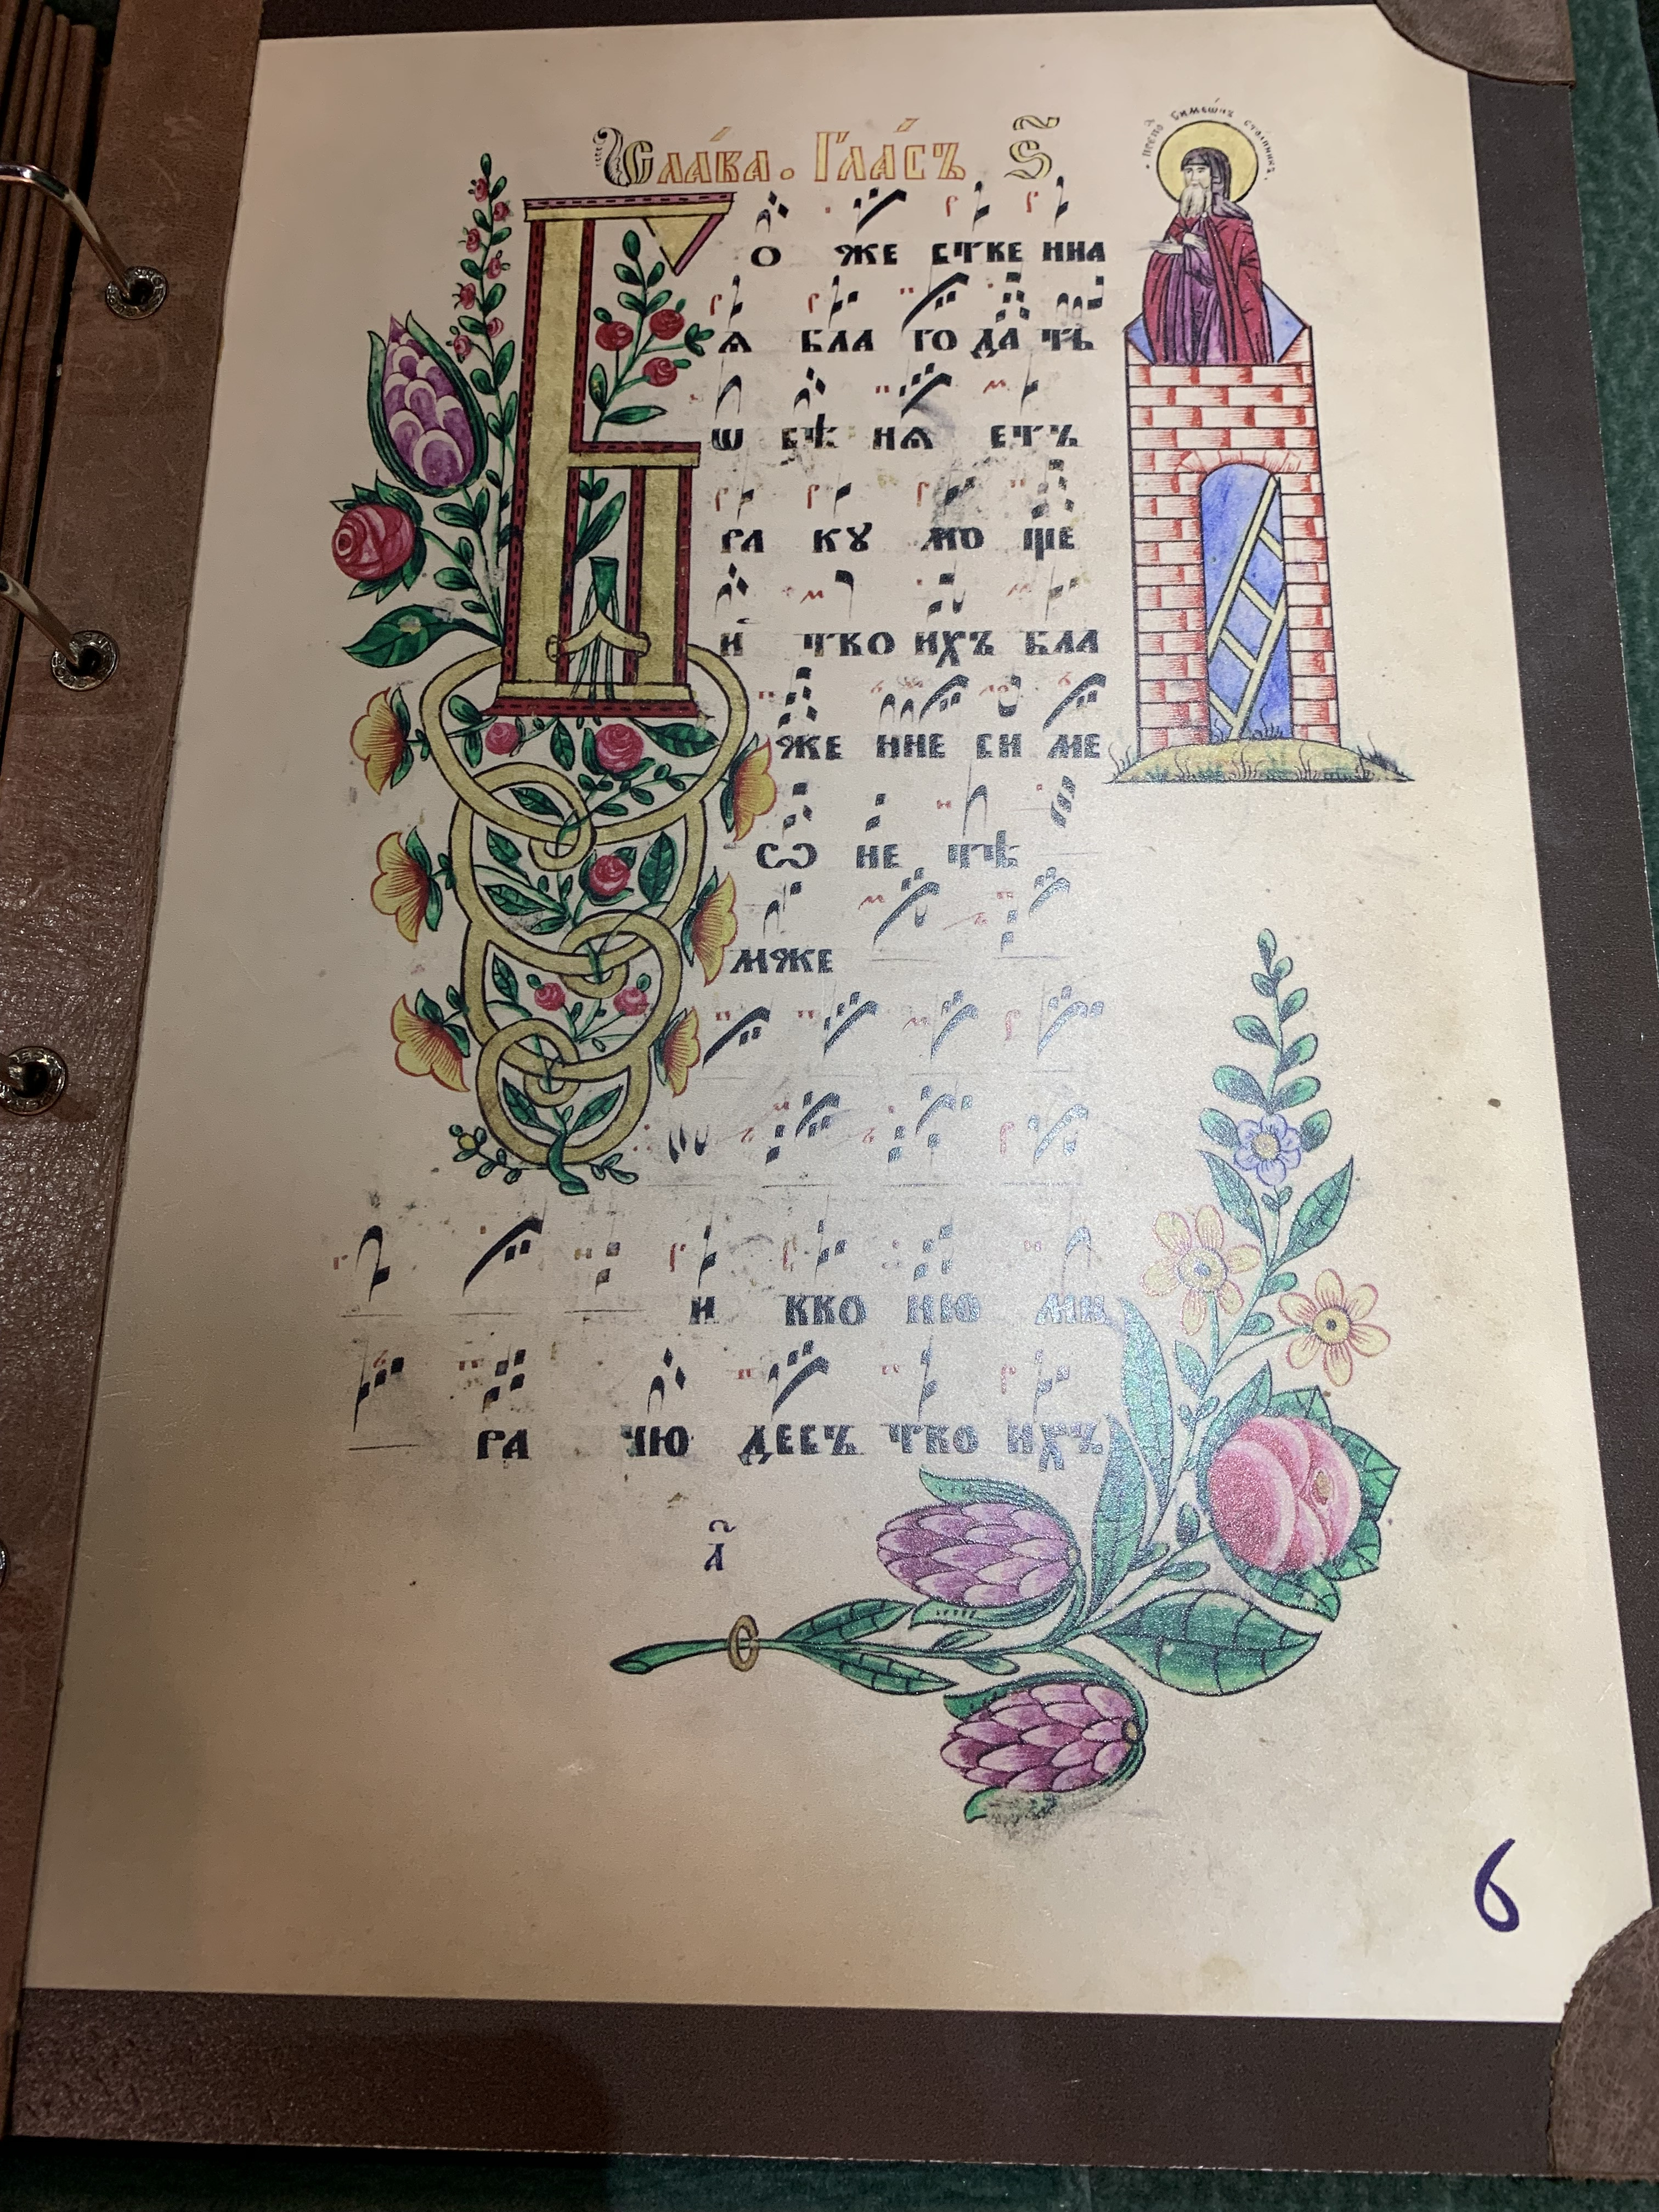 Сла́ва. Гла́съ ѕ҃
препо Симеѡ́нъ столпникъ
Б о же ств҃е нна
ѧ бла го да ть
ѡ сѣ нѧ етъ
ра ку мо ще
й тво ихъ бла
же нне си ме
ѡ не тѣ
мже
и вво ню ми
ра чю десъ тво ихъ
а҃
6